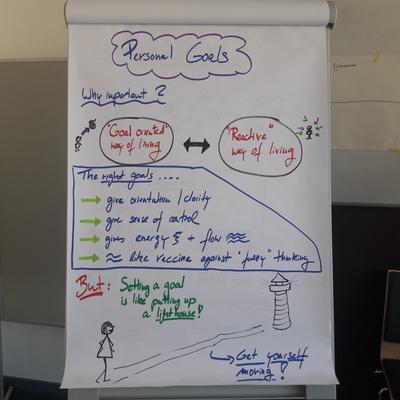 Personal Goals
Why important?
"Goal oriented"
way of living
"Reactive"
way of living
The right goals ....
give orientation / clarity
give sense of control
gives energy + flow
≈ like vaccine against "fuzzy" thinking
But: Setting a goal
is like putting up
a lifethouse!
Get yourself
moving!